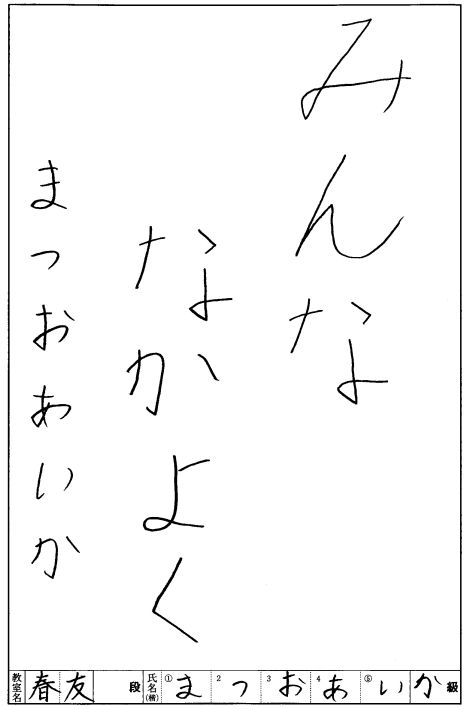 みんな
なかよく
まつおあいか
教室名 春友 段 氏名(横) ①ま ②つ ③お ④あ ⑤い か 級